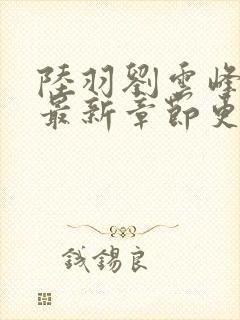 陸羽劉雲峰
最新章節更
钱錫良